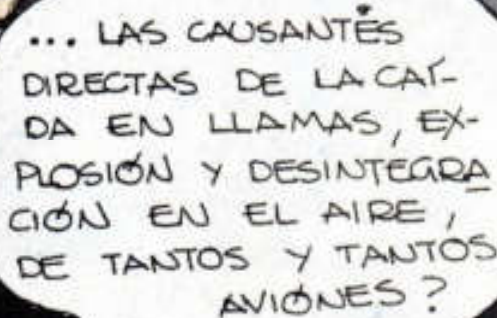 ... LAS CAUSANTÉS
DIRECTAS DE LA CAÍ-
DA EN LLAMAS, EX-
PLOSIÓN Y DESINTEGRA
CIÓN EN EL AIRE,
DE TANTOS Y TANTOS
AVIÓNES?